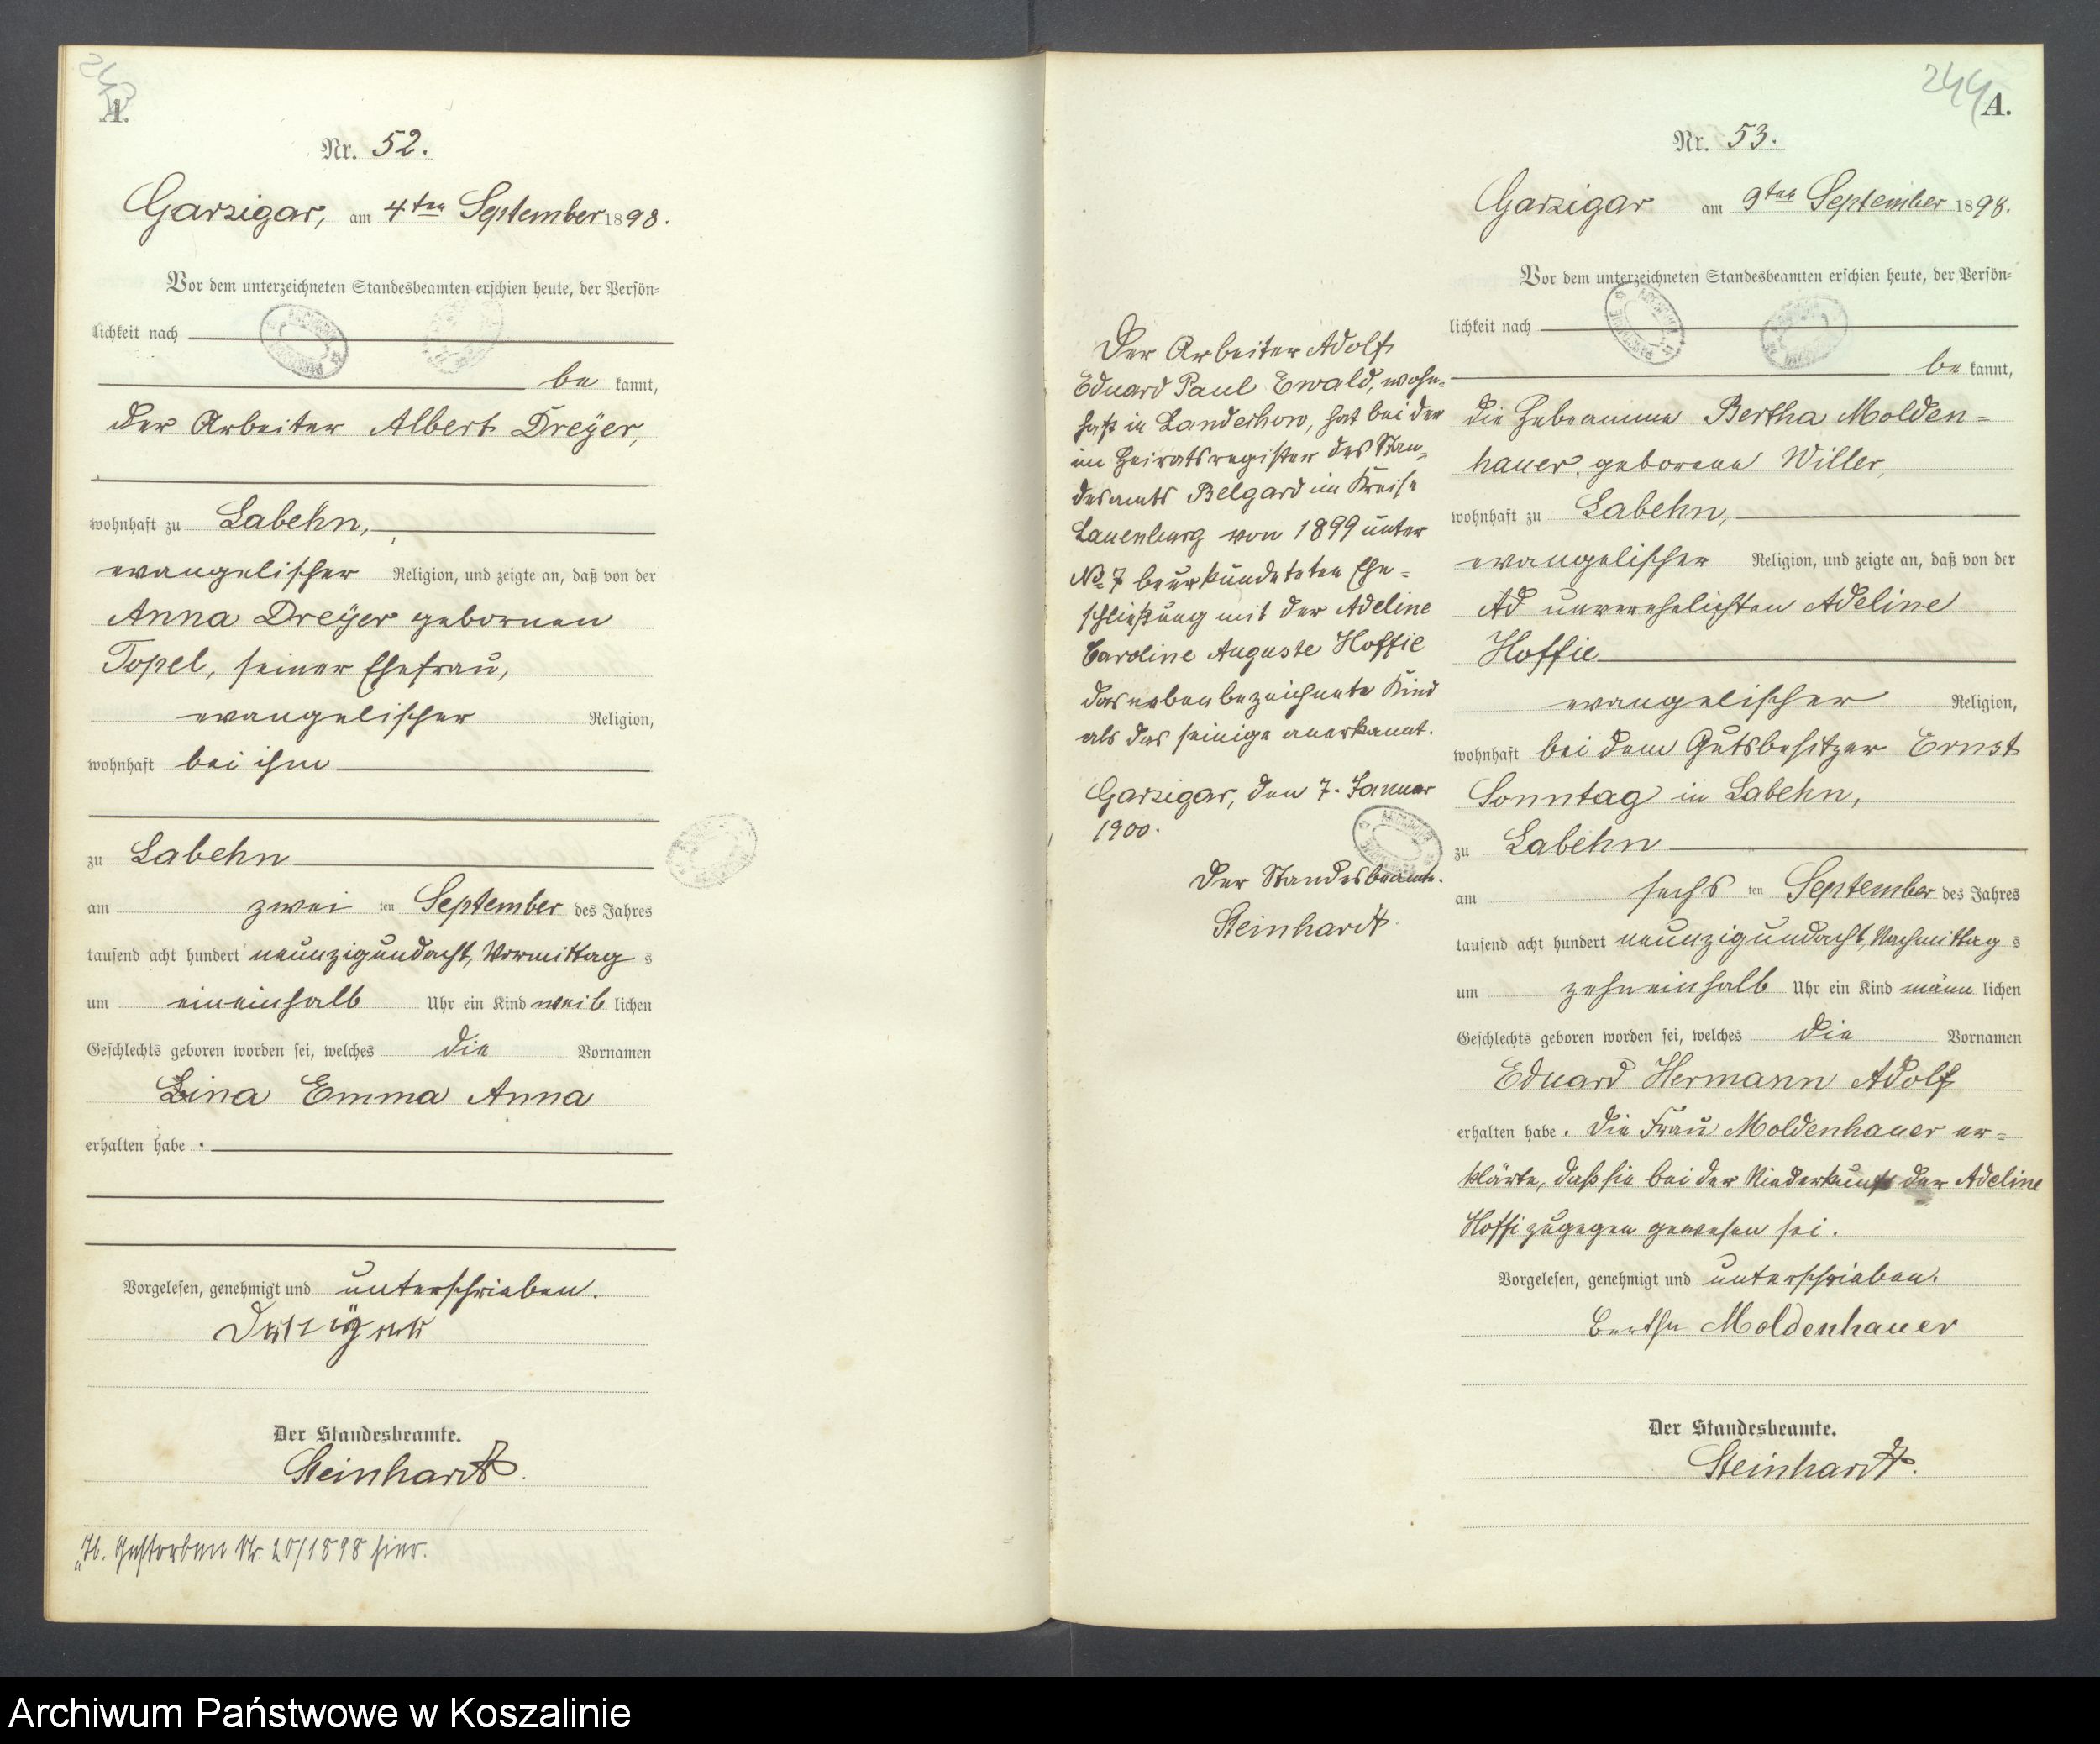 A.
Nr. 52.
Garzigar, am 4ten September 1898.
Vor dem unterzeichneten Standesbeamten erschien heute, der Persön-
lichkeit nach
be kannt,
der Arbeiter Albert Dreÿer,
wohnhaft zu Labehn,
evangelischer Religion, und zeigte an, daß von der
Anna Dreÿer gebornen
Topel, seiner Ehefrau,
evangelischer Religion,
wohnhaft bei ihm
zu Labehn
am zwei ten September des Jahres
tausend acht hundert neunzigundacht, Vormittag s
um eineinhalb Uhr ein Kind weib lichen
Geschlechts geboren worden sei, welches die Vornamen
Lina Emma Anna
erhalten habe.
Vorgelesen, genehmigt und unterschrieben.
Der Standesbeamte.
Steinhardt.
Gestorben Nr. 20/1898 hier.
244
A.
Nr. 53.
Garzigar am 9ten September 1898.
Vor dem unterzeichneten Standesbeamten erschien heute, der Persön-
lichkeit nach
be kannt,
die Hebeamme Bertha Molden-
hauer, geborene Willer,
wohnhaft zu Labehn,
evangelischer Religion, und zeigte an, daß von der
Ad unverehelichten Adeline
Hoffie
evangelischer Religion,
wohnhaft bei dem Gutsbesitzer Ernst
Sonntag in Labehn,
zu Labehn
am sechs ten September des Jahres
tausend acht hundert neunzigundacht, Nachmittag s
um zehneinhalb Uhr ein Kind männ lichen
Geschlechts geboren worden sei, welches die Vornamen
Eduard Hermann Adolf
erhalten habe. Die Frau Moldenhauer er-
klärte, daß sie bei der Niederkunft der Adeline
Hoffi zugegen gewesen sei.
Vorgelesen, genehmigt und unterschrieben.
Bertha Moldenhauer
Der Standesbeamte.
Steinhardt.
Der Arbeiter Adolf
Eduard Paul Ewald, wohn-
haft in Landechow, hat bei der
im Heiratsregister des Stan-
desamts Belgard im Kreise
Lauenburg von 1899 unter
No 7 beurkundeten Ehe-
schließung mit der Adeline
Caroline Auguste Hoffie
das nebenbezeichnete Kind
als das seinige anerkannt.
Garzigar, den 7. Januar
1900.
Der Standesbeamte.
Steinhardt.
Archiwum Państwowe w Koszalinie